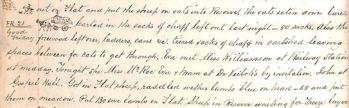 out of Flat and put the sheep on oats into Reserve the oats eaten down bare.
FR. 21 carted in the sacks of chaff left out last night – 50 sacks. Also the
Good Friday firewood left over, ladders, cans etc. tiered sacks of chaff in cartshed leaving
spaces between for cats to get through, Eva met Miss Williamson at Railway Station
at midday. Tonight she Miss McKee Eva & Mum at De Keilots by invitation, John at
Gospel Hall. Got in Flat sheep, raddled wether lambs blue on head – 68 and put
them on meadow. Put Ewe Lambs on Flat. Sheep in Reserve waiting for buyer